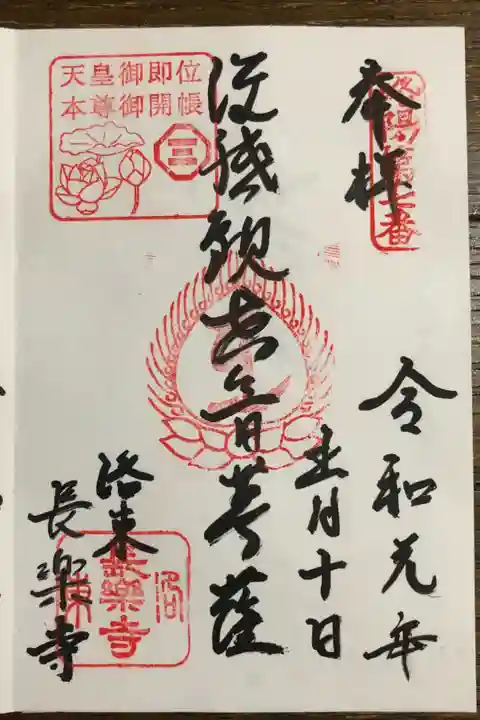 奉拝
洛陽第七番
令和元年
五月十日
准胝観世音菩薩
天皇御即位
本尊御開帳
三
洛東
長楽寺
洛東
長樂寺